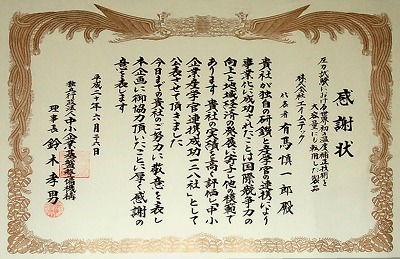 感謝状
圧力試験における世界初の温度補正技術と
大容量にも戦用した製品
株式会社エイムテック
代表者 有馬慎一郎殿
貴社が独自の研鑽と産学官の連携により
事業化に成功されたことは国際競争力の
向上と地域経済の発展に寄与し他の模範で
あります 貴社の実績を高く評価し「中小
企業産学官連携成功一二八社」として
公表させて頂きました
今日までの貴社のご努力に敬意を表し
本企画に御協力頂いたことに厚く感謝の
意を表します
平成二十年六月十六日
独立行政法人中小企業基盤整備機構
理事長 鈴木孝男